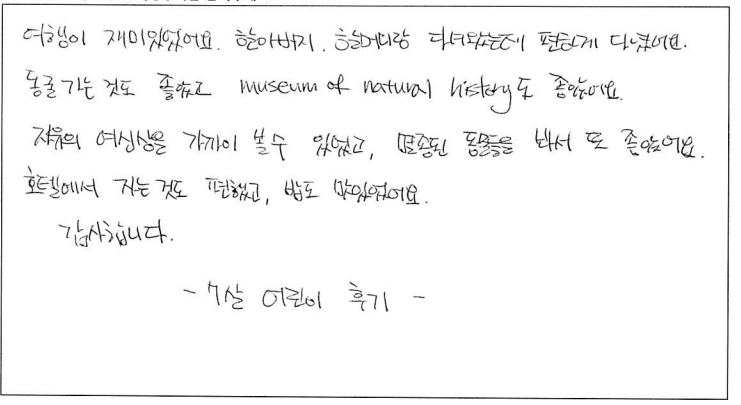 여행이 재미있었어요. 할아버지, 할머니랑 다녀왔는데 편하게 다녔어요.
동굴 가는 것도 좋았고 museum of natural history도 좋았어요.
자유의 여신상을 가까이 볼 수 있었고, 멸종된 동물들을 봐서 또 좋았어요.
호텔에서 자는 것도 편했고, 밥도 맛있었어요.
감사합니다.
- 7살 어린이 후기 -